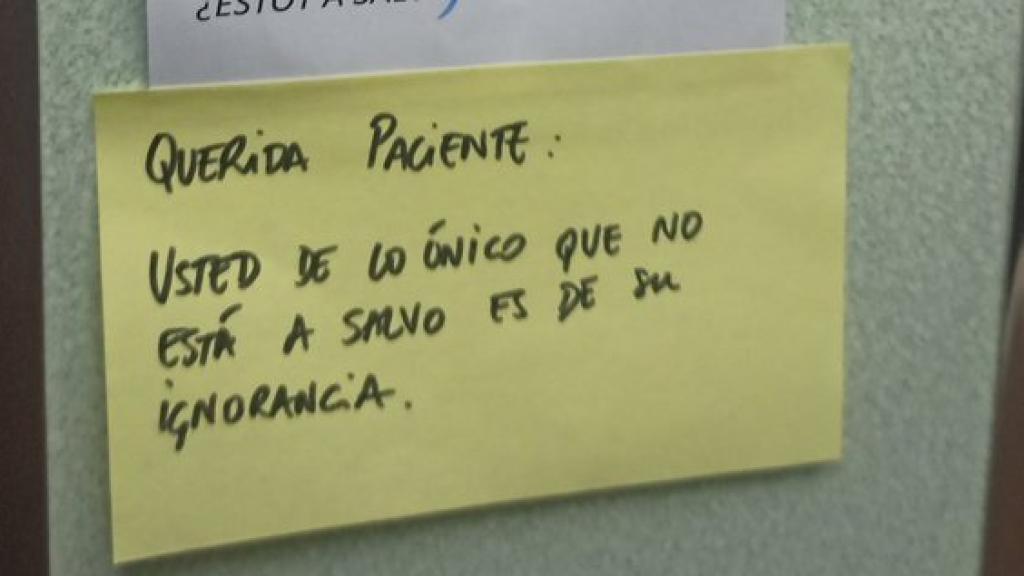 ¿ESTOY A
QUERIDA PACIENTE:
USTED DE LO ÚNICO QUE NO
ESTÁ A SALVO ES DE SU
IGNORANCIA.